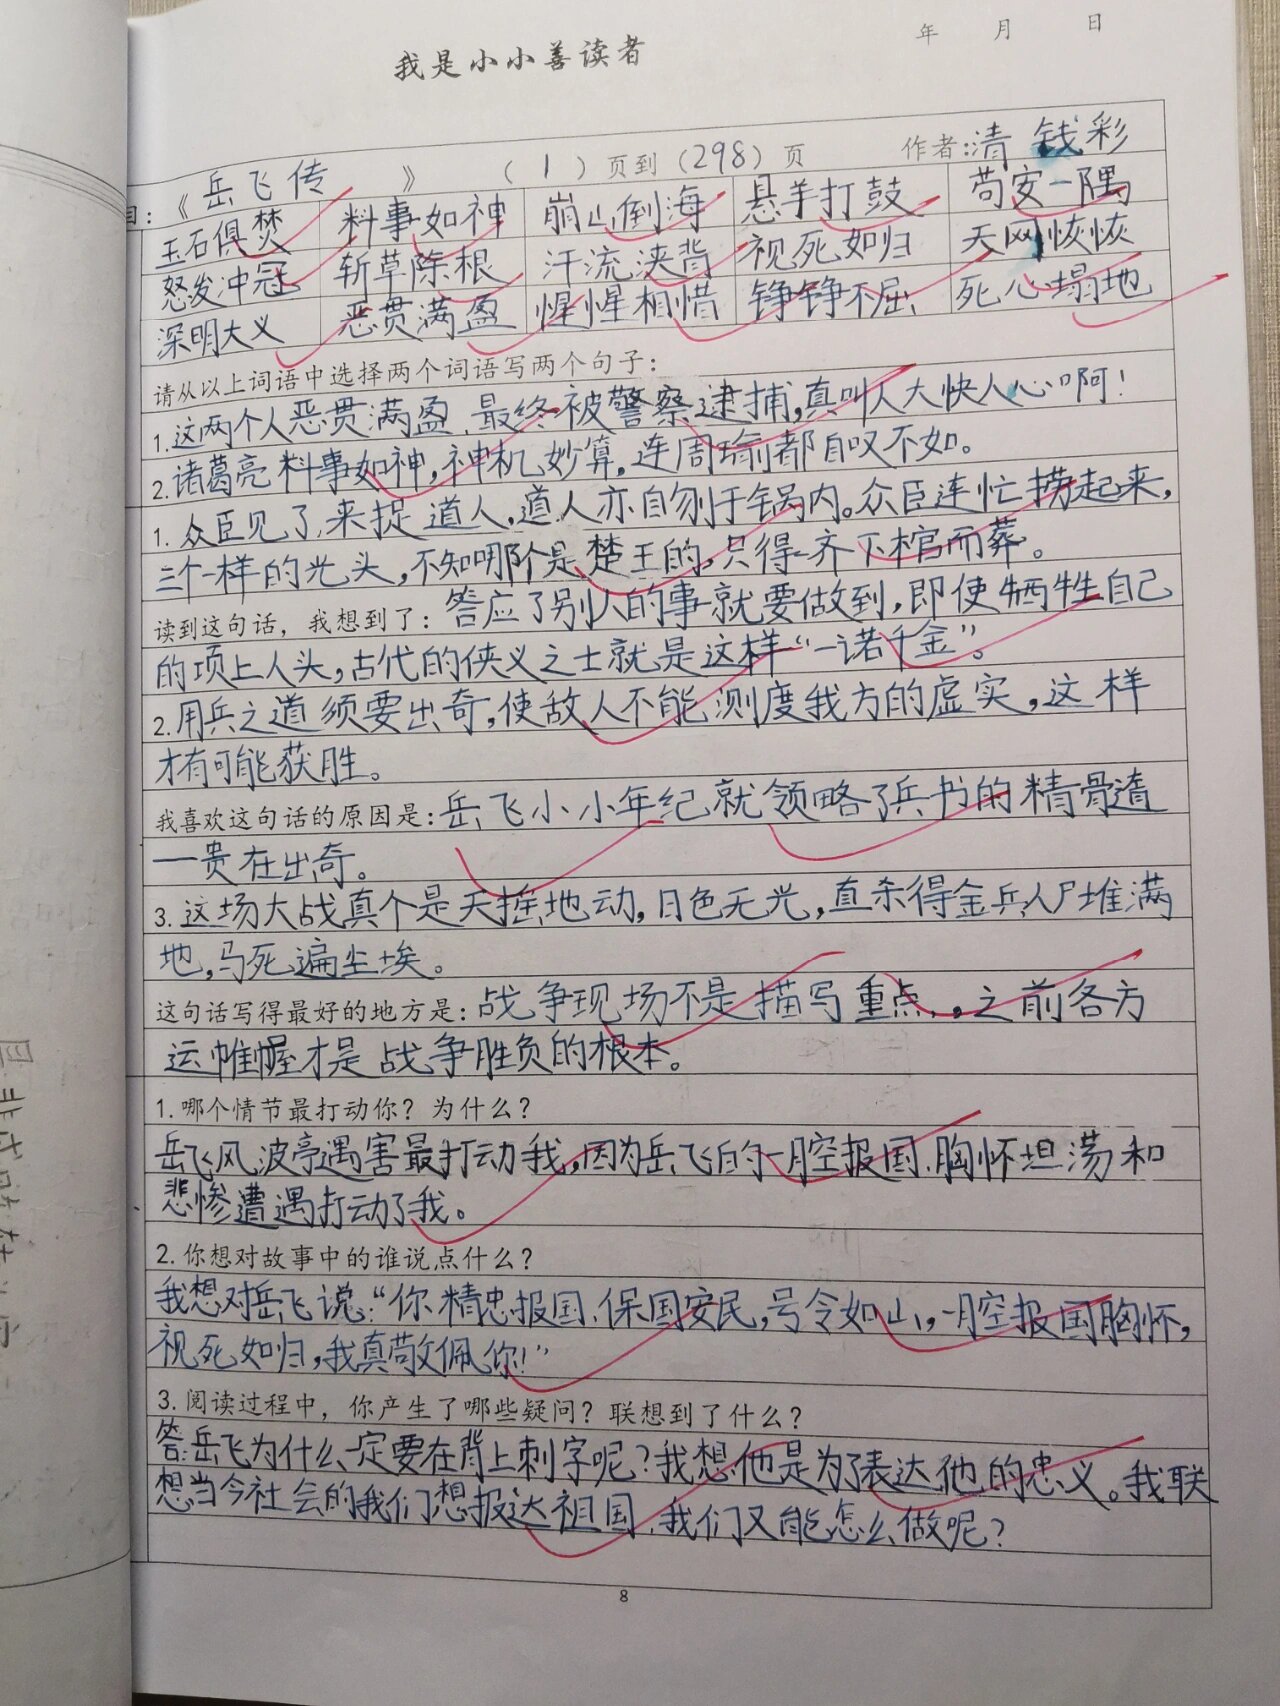 年 月 日
我是小小善读者
目：《岳飞传》 （1）页到（298）页 作者：清 钱彩
玉石俱焚 料事如神 崩山倒海 悬羊打鼓 苟安一隅
怒发冲冠 斩草除根 汗流浃背 视死如归 天网恢恢
深明大义 恶贯满盈 惺惺相惜 铮铮不屈 死心塌地
请从以上词语中选择两个词语写两个句子：
1.这两个人恶贯满盈，最终被警察逮捕，真叫人大快人心啊！
2.诸葛亮料事如神，神机妙算，连周瑜都自叹不如。
1.众臣见了，来捉道人，道人亦自刎于锅内。众臣连忙捞起来，
三个一样的光头，不知哪个是楚王的，只得一齐下棺而葬。
读到这句话，我想到了：答应了别人的事就要做到，即使牺牲自己
的项上人头，古代的侠义之士就是这样“一诺千金”。
2.用兵之道须要出奇，使敌人不能测度我方的虚实，这样
才有可能获胜。
我喜欢这句话的原因是：岳飞小小年纪就领略了兵书的精骨遒
一贵在出奇。
3.这场大战真个是天摇地动，日色无光，直杀得金兵人尸堆满
地，马死遍尘埃。
这句话写得最好的地方是：战争现场不是描写重点，。之前各方
运帷幄才是战争胜负的根本。
1.哪个情节最打动你？为什么？
岳飞风波亭遇害最打动我，因为岳飞的一腔报国、胸怀坦荡和
悲惨遭遇打动了我。
2.你想对故事中的谁说点什么？
我想对岳飞说：“你精忠报国、保国安民，号令如山，一腔报国胸怀，
视死如归，我真敬佩你！”
3.阅读过程中，你产生了哪些疑问？联想到了什么？
答：岳飞为什么一定要在背上刺字呢？我想，他是为了表达他的忠义。我联
想当今社会的我们想报达祖国，我们又能怎么做呢？
8